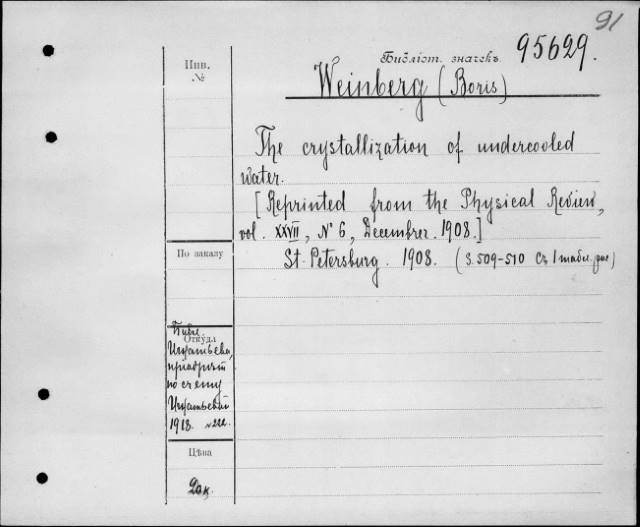 91
Библіот. значекъ 95629.
Инв.
№
Weinberg (Boris)
The crystallization of undercooled
water.
[Reprinted from the Physical Review,
vol. XXVII, № 6, December. 1908.]
St. Petersburg. 1908. (S. 509-510 съ 1 табл. рис)
По заказу
Откуда
Библ.
Игнатьева,
по счету
1918. № 222.
Цѣна
20 к.